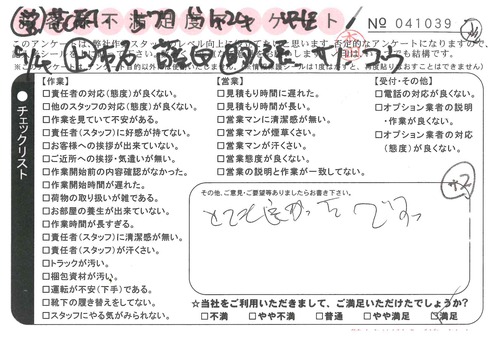 No 041039
このアンケートは、弊社作業スタッフのレベル向上に役立てたいと思います。否定的なアンケートになりますので、
チェックリスト
【作業】
□責任者の対応(態度)が良くない。
□他のスタッフの対応(態度)が良くない。
□作業を見ていて不安がある。
□責任者(スタッフ)に好感が持てない。
□お客様への挨拶が出来ていない。
□ご近所への挨拶・気遣いが無い。
□作業開始前の内容確認がなかった。
□作業開始時間が遅れた。
□荷物の取り扱いが雑である。
□お部屋の養生が出来ていない。
□作業時間が長すぎる。
□責任者(スタッフ)に清潔感が無い。
□責任者(スタッフ)が汗くさい。
□トラックが汚い。
□梱包資材が汚い。
□運転が不安(下手)である。
□靴下の履き替えをしてない。
□スタッフにやる気がみられない。
【営業】
□見積もり時間に遅れた。
□見積もり時間が長い。
□営業マンに清潔感が無い。
□営業マンが煙草くさい。
□営業マンが汗くさい。
□営業態度が良くない。
□営業の説明と作業が一致してない。
【受付・その他】
□電話の対応が良くない。
□オプション業者の説明
・作業が良くない。
□オプション業者の対応
(態度)が良くない。
その他、ご意見・ご要望等ありましたらお書き下さい。
とても良かったです。
☆当社をご利用いただきまして、ご満足いただけたでしょうか?
□不満 □やや不満 □普通 □やや満足 □満足